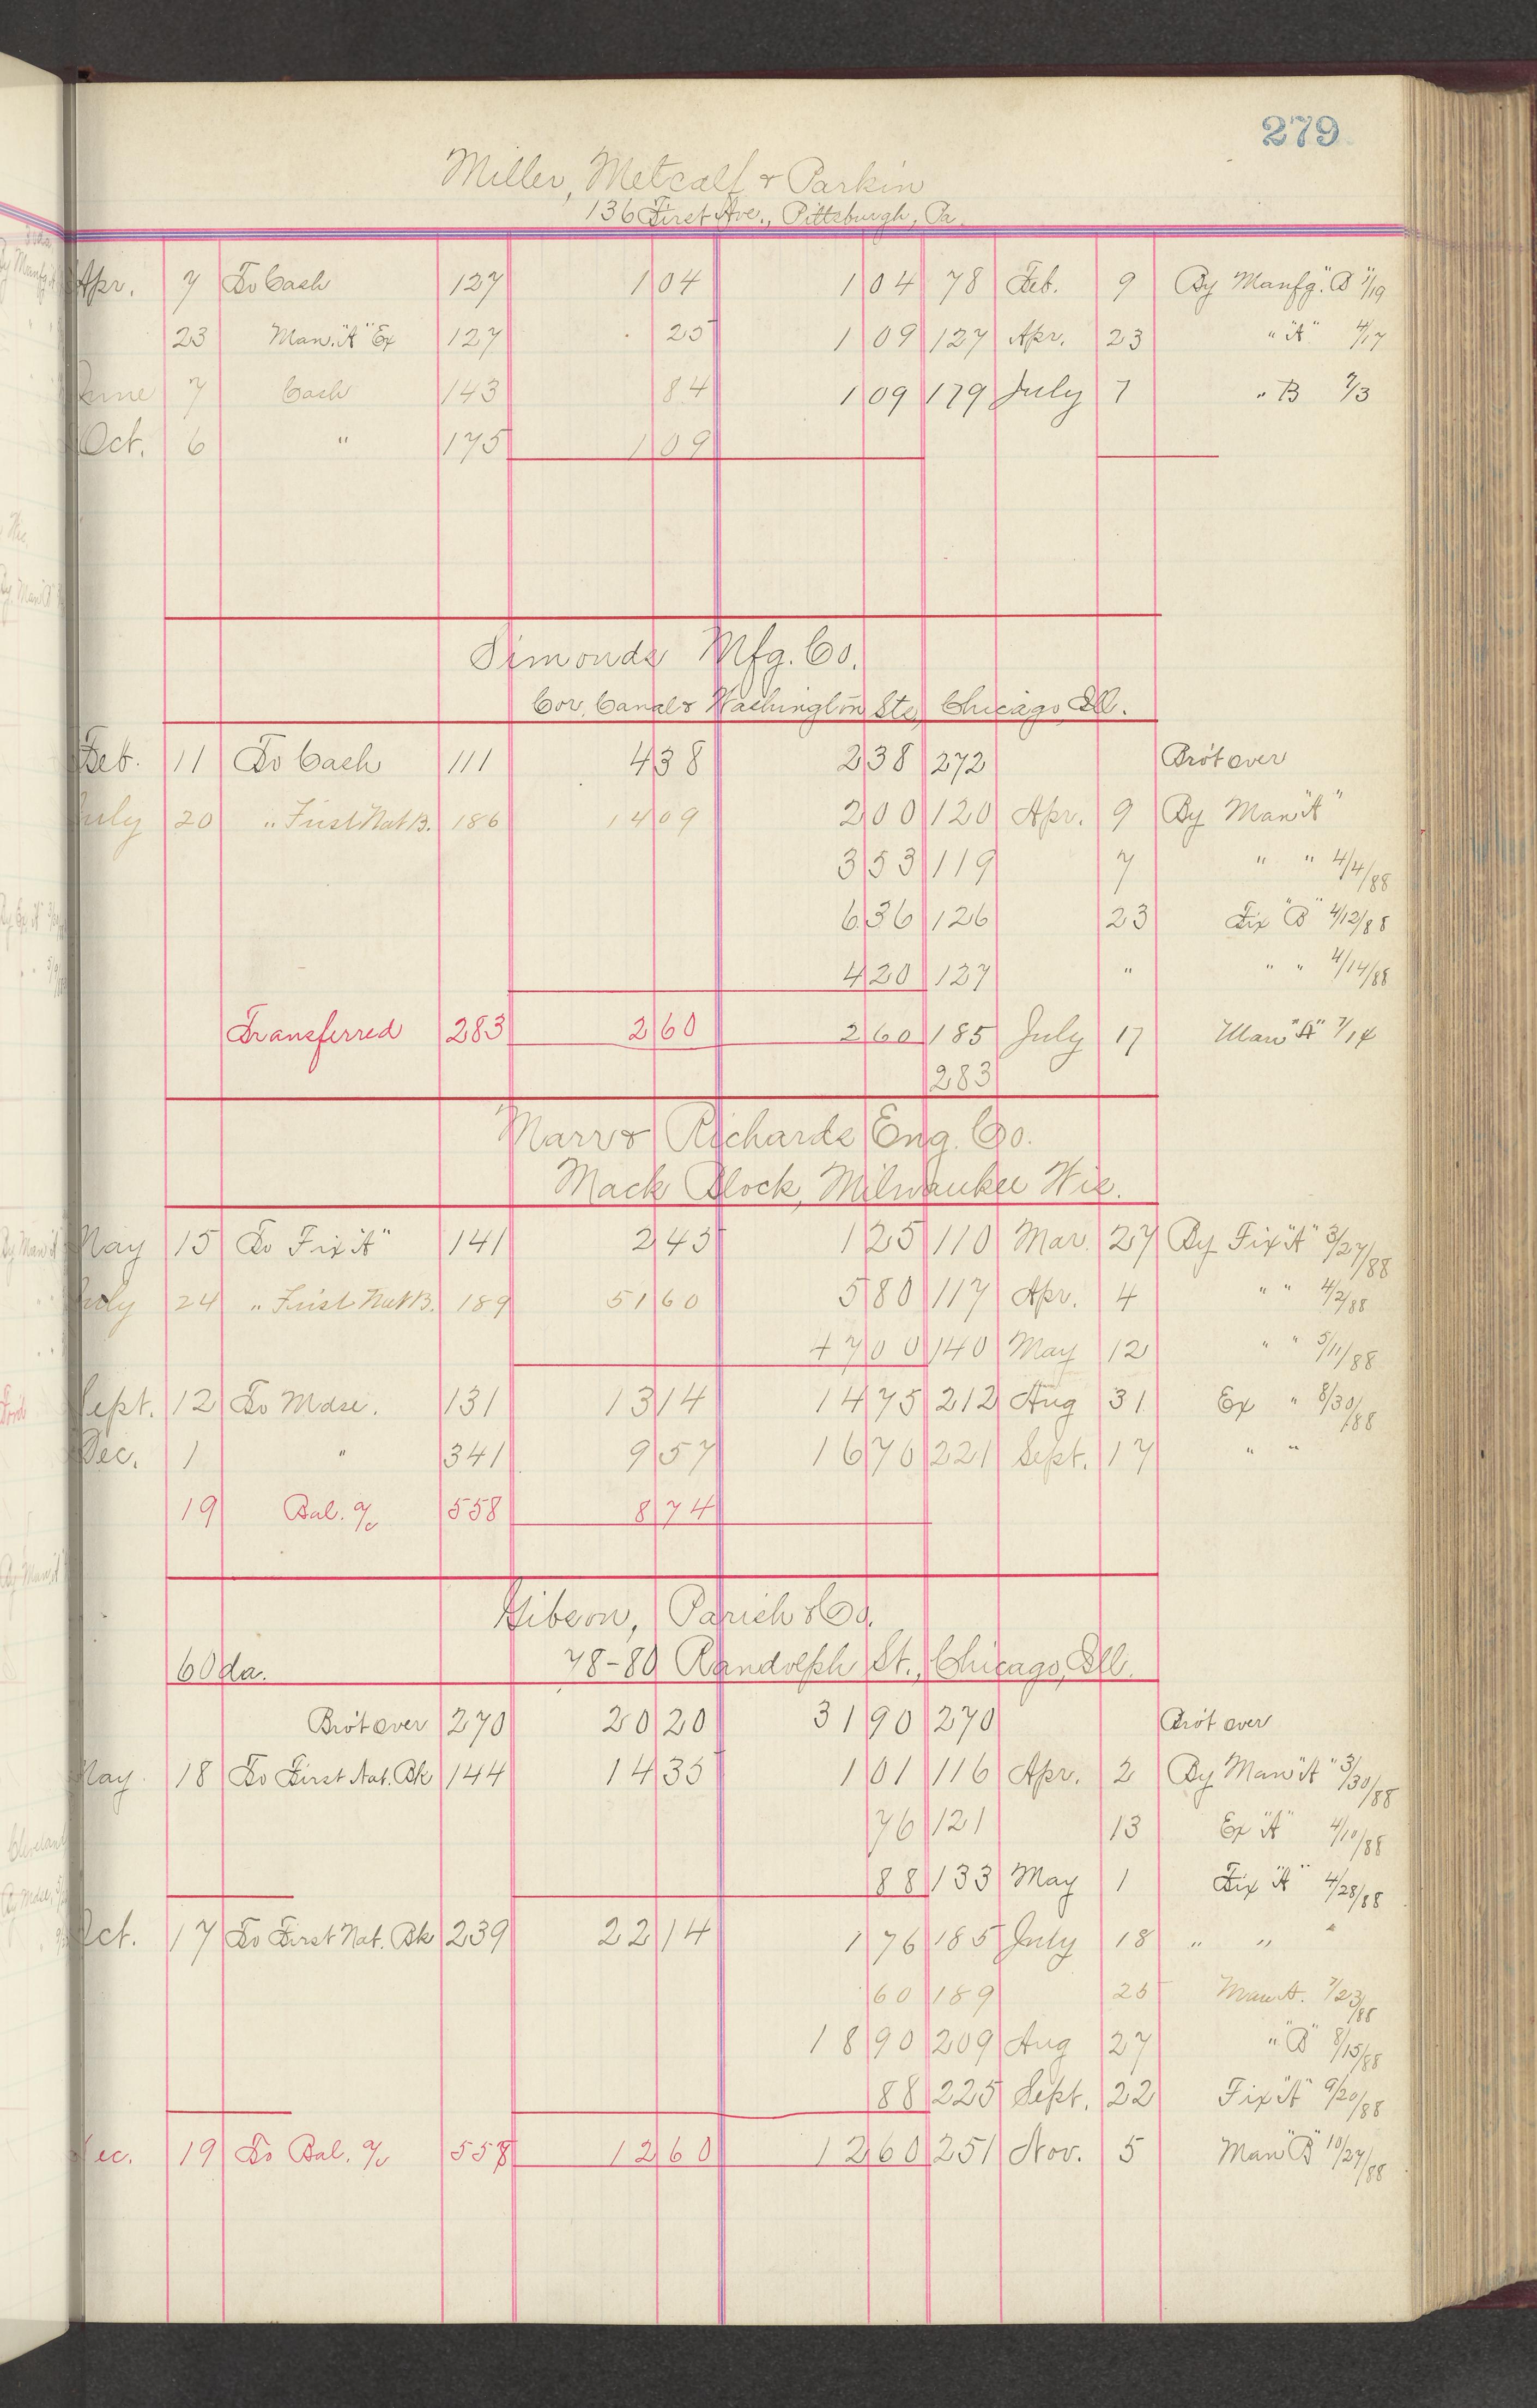 279
Miller, Metcalf & Parkin
136 First Ave., Pittsburgh, Pa.
Apr. 7 To Cash 127 1 04 1 04 78 Feb. 9 By Manfg. "B" 1/19
23 Man. "A" Ex 127 25 1 09 127 Apr. 23 " "A" 4/17
June 7 Cash 143 84 1 09 179 July 7 " B 7/3
Oct. 6 " 175 1 09
Simonds Mfg. Co.
Cor. Canal & Washington Sts, Chicago, Ill.
Feb. 11 To Cash 111 4 38 2 38 272 Bro't over
July 20 " First Nat B. 186 14 09 2 00 120 Apr. 9 By Man "A"
3 53 119 7 " " 4/4/88
6 36 126 23 Fix "B" 4/12/88
4 20 127 " " " 4/14/88
Transferred 283 2 60 2 60 185 July 17 Man "A" 7/14
283
Marr & Richards Eng. Co.
Mack Block, Milwaukee Wis.
May 15 To Fix "A" 141 2 45 1 25 110 Mar. 27 By Fix "A" 3/27/88
July 24 " First Nat B. 189 51 60 5 80 117 Apr. 4 " " 4/2/88
47 00 140 May 12 " " 5/11/88
Sept. 12 To Mdse. 131 13 14 14 75 212 Aug 31 Ex " 8/30/88
Dec. 1 " 341 9 57 16 70 221 Sept. 17 " "
19 Bal. a/c 558 8 74
Gibson, Parish & Co.
60 da. 78-80 Randolph St., Chicago, Ill.
Bro't over 270 20 20 31 90 270 Bro't over
May 18 To First Nat. Bk 144 14 35 1 01 116 Apr. 2 By Man "A" 3/30/88
76 121 13 Ex "A" 4/10/88
88 133 May 1 Fix "A" 4/28/88
Oct. 17 To First Nat. Bk 239 22 14 1 76 185 July 18 " " "
60 189 25 Man A. 7/23/88
18 90 209 Aug 27 " "B" 8/15/88
88 225 Sept. 22 Fix "A" 9/20/88
Dec. 19 To Bal. a/c 558 12 60 12 60 251 Nov. 5 Man "B" 10/27/88